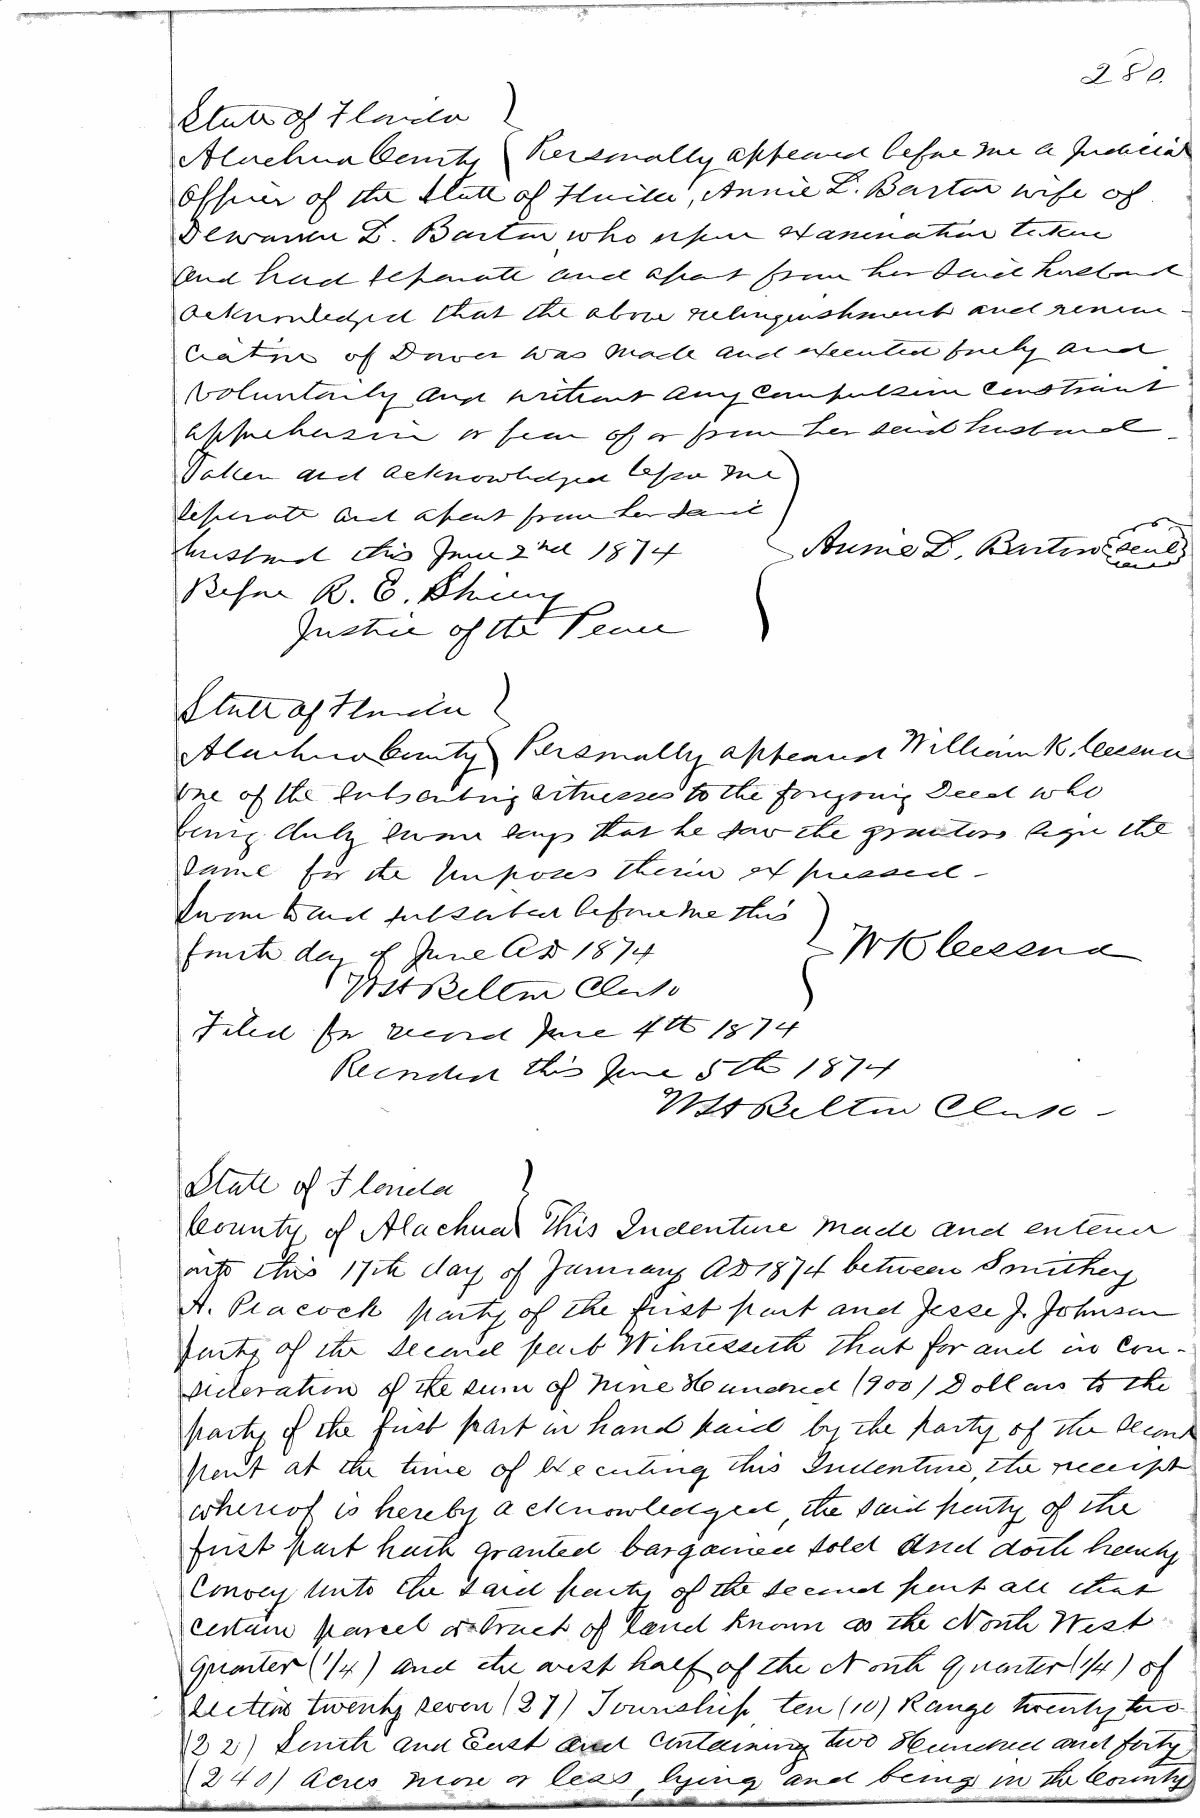 280.
State of Florida
Alachua County Personally appeared before me a Judicial
officer of the State of Florida, Annie L. Barton wife of
Dewarren L. Barton, who upon examination taken
and had seperate and apart from her said husband
acknowledged that the above relinquishment and renun-
ciation of Dower was made and executed freely and
voluntarily and without any compulsion constraint
apprehension or fear of or from her said husband -
Taken and acknowledged before me
seperate and apart from her said
husband this June 2nd 1874 Annie L. Barton seal
Before R. E.
Justice of the Peace
State of Florida
Alachua County Personally appeared William K. Cessna
one of the subscribing witnesses to the foregoing Deed who
being duly sworn says that he saw the grantors sign the
same for the purposes therein expressed -
Sworn to and subscribed before me this
fourth day of June AD 1874 WK Cessna
WH Belton Clerk
Filed for record June 4th 1874
Recorded this June 5th 1874
WH Belton Clerk -
State of Florida
County of Alachua This Indenture made and entered
into this 17th day of January AD 1874 between Smithey
A. Peacock party of the first part and Jesse J. Johnson
party of the second part Witnesseth that for and in con-
sideration of the sum of Nine Hundred (900) Dollars to the
party of the first part in hand paid by the party of the second
part at the time of executing this Indenture, the receipt
whereof is hereby acknowledged, the said party of the
first part hath granted bargained sold and doth hereby
convey unto the said party of the second part all that
certain parcel or tract of land known as the North West
quarter (1/4) and the west half of the North quarter (1/4) of
section twenty seven (27) Township ten (10) Range twenty two
(22) South and East and containing two Hundred and forty
(240) Acres more or less, lying and being in the County